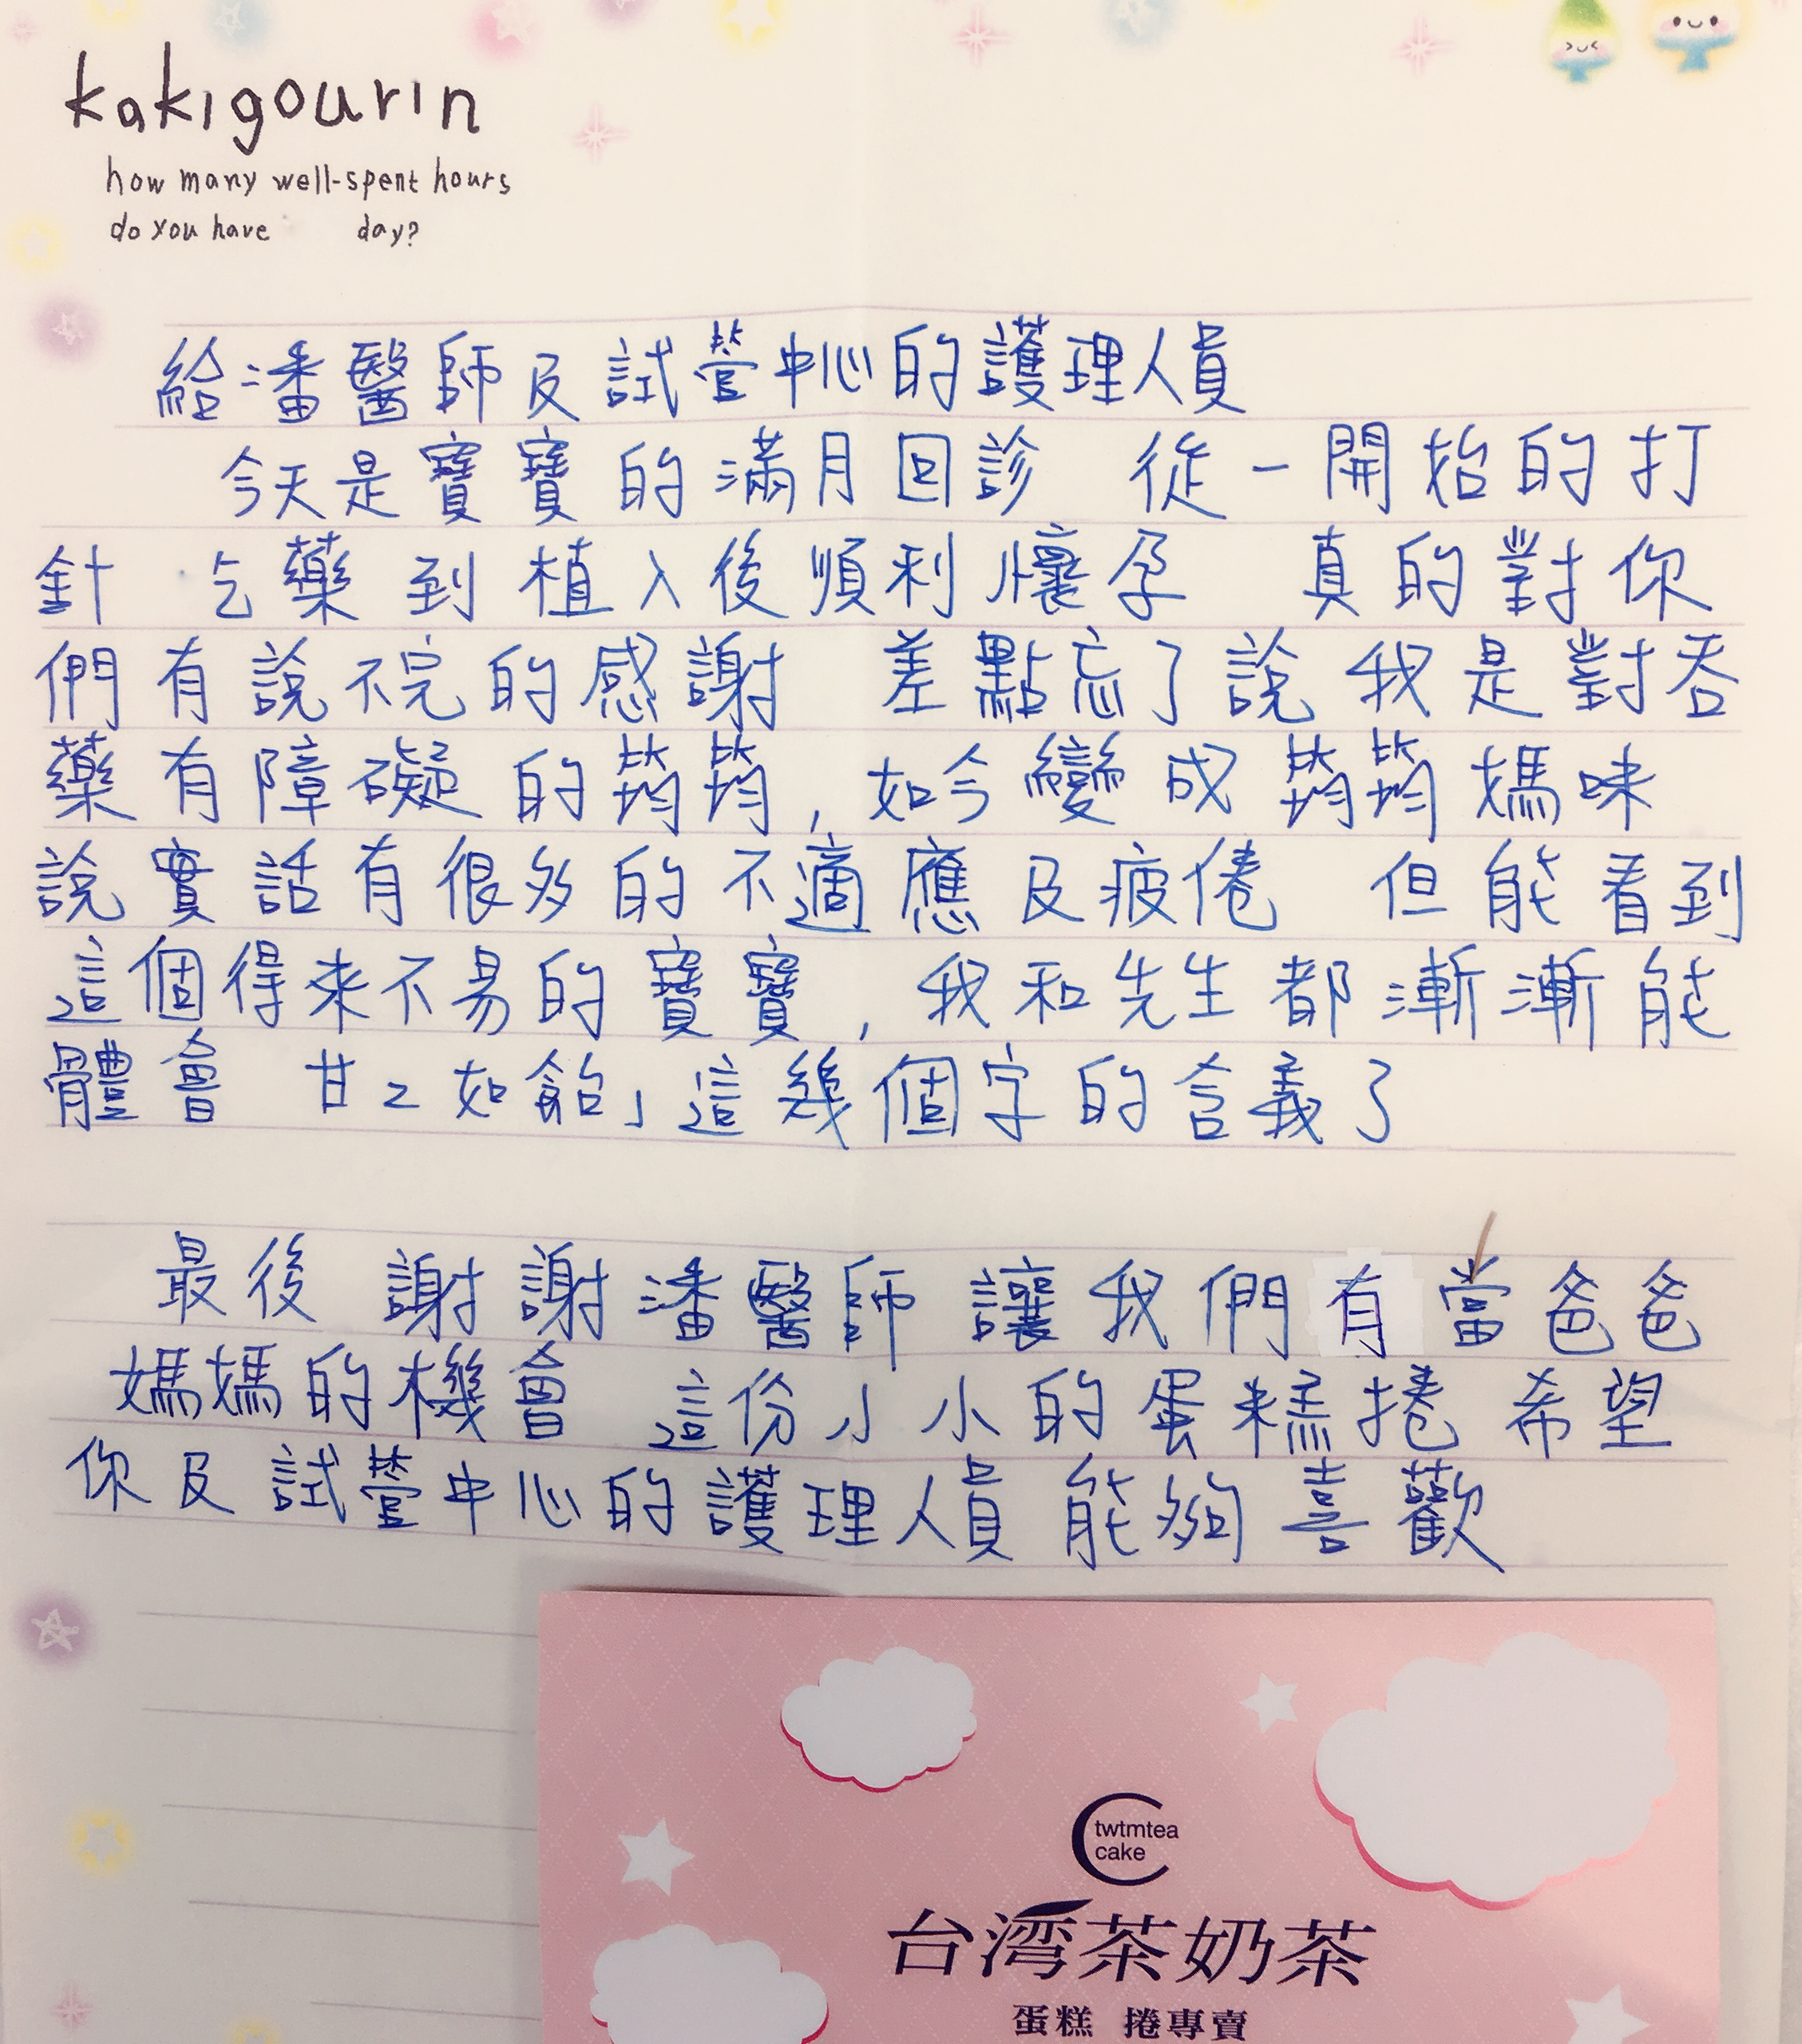 kakigourin
how many well-spent hours
do you have day?
給潘醫師及試管中心的護理人員
今天是寶寶的滿月回診 從一開始的打
針 吃藥到植入後順利懷孕 真的對你
們有說不完的感謝 差點忘了說我是對吞
藥有障礙的筠筠,如今變成筠筠媽咪
說實話有很多的不適應及疲倦 但能看到
這個得來不易的寶寶,我和先生都漸漸能
體會 甘之如飴」這幾個字的含義了
最後 謝謝潘醫師 讓我們有當爸爸
媽媽的機會 這份小小的蛋糕捲 希望
你及試管中心的護理人員 能夠喜歡
twtmtea
cake
台湾茶奶茶
蛋糕 捲專賣